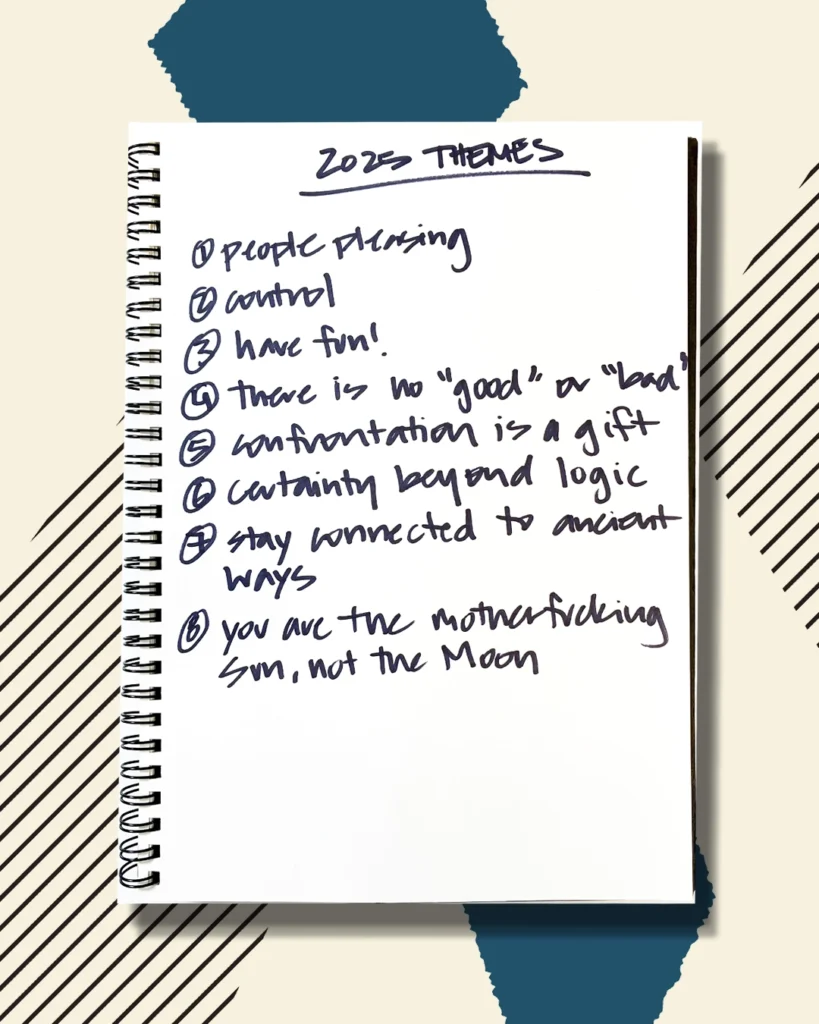 2025 THEMES
① people pleasing
② control
③ have fun!
④ there is no "good" or "bad"
⑤ confrontation is a gift
⑥ certainty beyond logic
⑦ stay connected to ancient
ways
⑧ you are the motherfucking
Sun, not the Moon